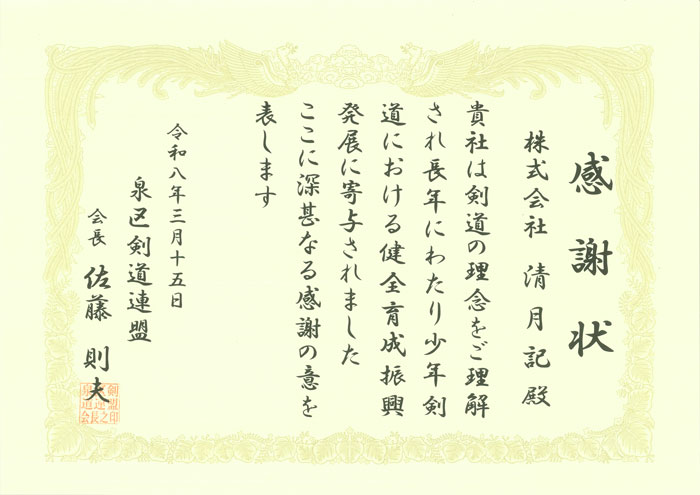 感謝状
株式会社 清月記殿
貴社は剣道の理念をご理解
され長年にわたり少年剣
道における健全育成振興
発展に寄与されました
ここに深甚なる感謝の意を
表します
令和八年三月十五日
泉区剣道連盟
会長 佐藤 則夫
剣盟印
区連之
泉道会長